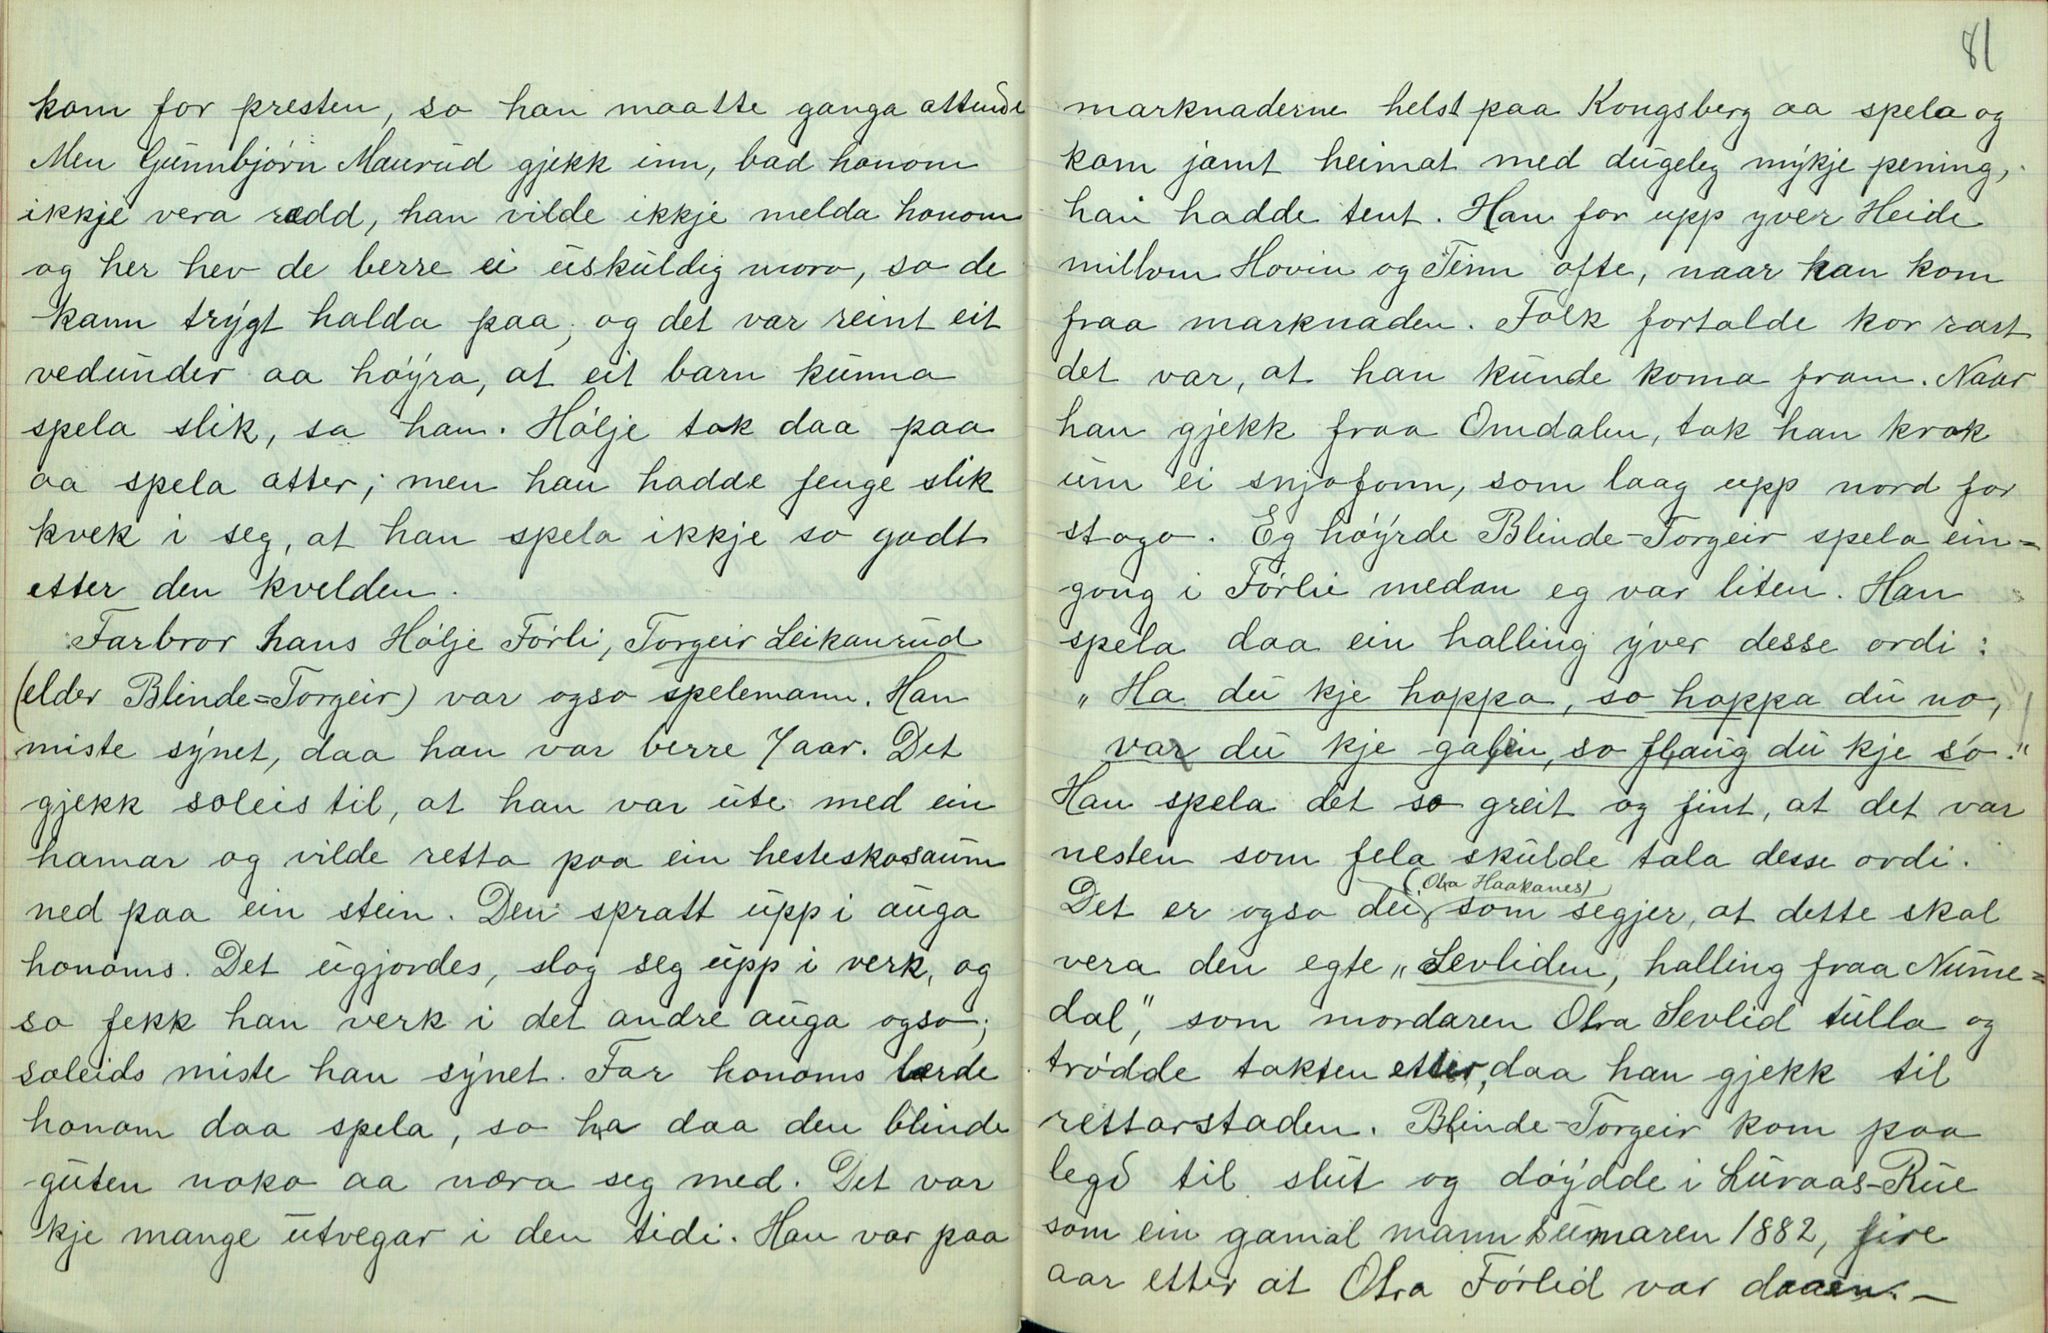 kom for presten, so han maatte ganga attende
Men Gunnbjørn Maurud gjekk inn, bad honom
ikkje vera rædd, han vilde ikkje melda honom
og her hev de berre ei uskuldig moro, so de
kann trygt halda paa, og det var reint eit
vedunder aa høyra, at eit barn kunna
spela slik, sa han. Hølje tok daa paa
aa spela atter; men han hadde fenge slik
kvek i seg, at han spela ikkje so godt
etter den kvelden.
Farbror hans Hølje Førli, Torgeir Leikanrud
(elder Blinde-Torgeir) var ogso spelemann. Han
miste synet, daa han var berre 7 aar. Det
gjekk soleis til, at han var ute med ein
hamar og vilde retta paa ein hesteskosaum
ned paa ein stein. Den spratt upp i auga
honoms. Det ugjordes, slog seg upp i verk, og
so fekk han verk i det andre auga ogso;
soleids miste han synet. Far honoms lærde
honom daa spela, so ha daa den blinde
guten noko aa næra seg med. Det var
kje mange utvegar i den tidi. Han var paa
81
marknaderne helst paa Kongsberg aa spela og
kom jamt heimat med dugeleg mykje pening,
han hadde tent. Han for upp yver Heide
millom Hovin og Tinn ofte, naar han kom
fraa marknaden. Folk fortalde kor rart
det var, at han kunde koma fram. Naar
han gjekk fraa Omdalen, tok han krok
um ei snjofonn, som laag upp nord for
stogo. Eg høyrde Blinde-Torgeir spela ein-
gong i Førlie medan eg var liten. Han
spela daa ein halling yver desse ordi:
"Ha du kje hoppa, so hoppa du no,
var du kje galin, so flaug du kje so."
Han spela det so greit og fint, at det var
nesten som fela skulde tala desse ordi.
(Olra Haakanes)
Det er ogso dei som segjer, at dette skal
vera den egte "Levliden, halling fraa Nume-
dal", som mordaren Olra Sevlid tulla og
trødde takten etter, daa han gjekk til
rettarstaden. Blinde-Torgeir kom paa
legd til slut og døydde i Luraas-Rue
som ein gamal mann sumaren 1882, fire
aar etter at Olra Førlid var daaen. -